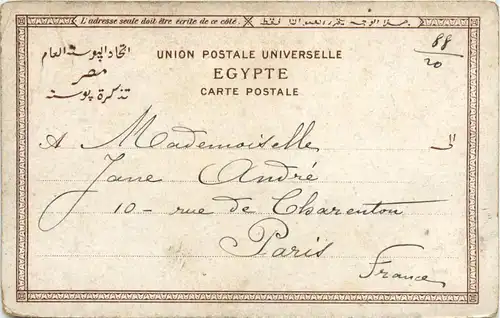 L'adresse seule doit être écrite de ce côté.
UNION POSTALE UNIVERSELLE
اتحاد البوستة العام
EGYPTE
مصر
CARTE POSTALE
تذكرة بوستة
88
20
A Mademoiselle
الى
Jane André
10 - rue de Charenton
Paris
France